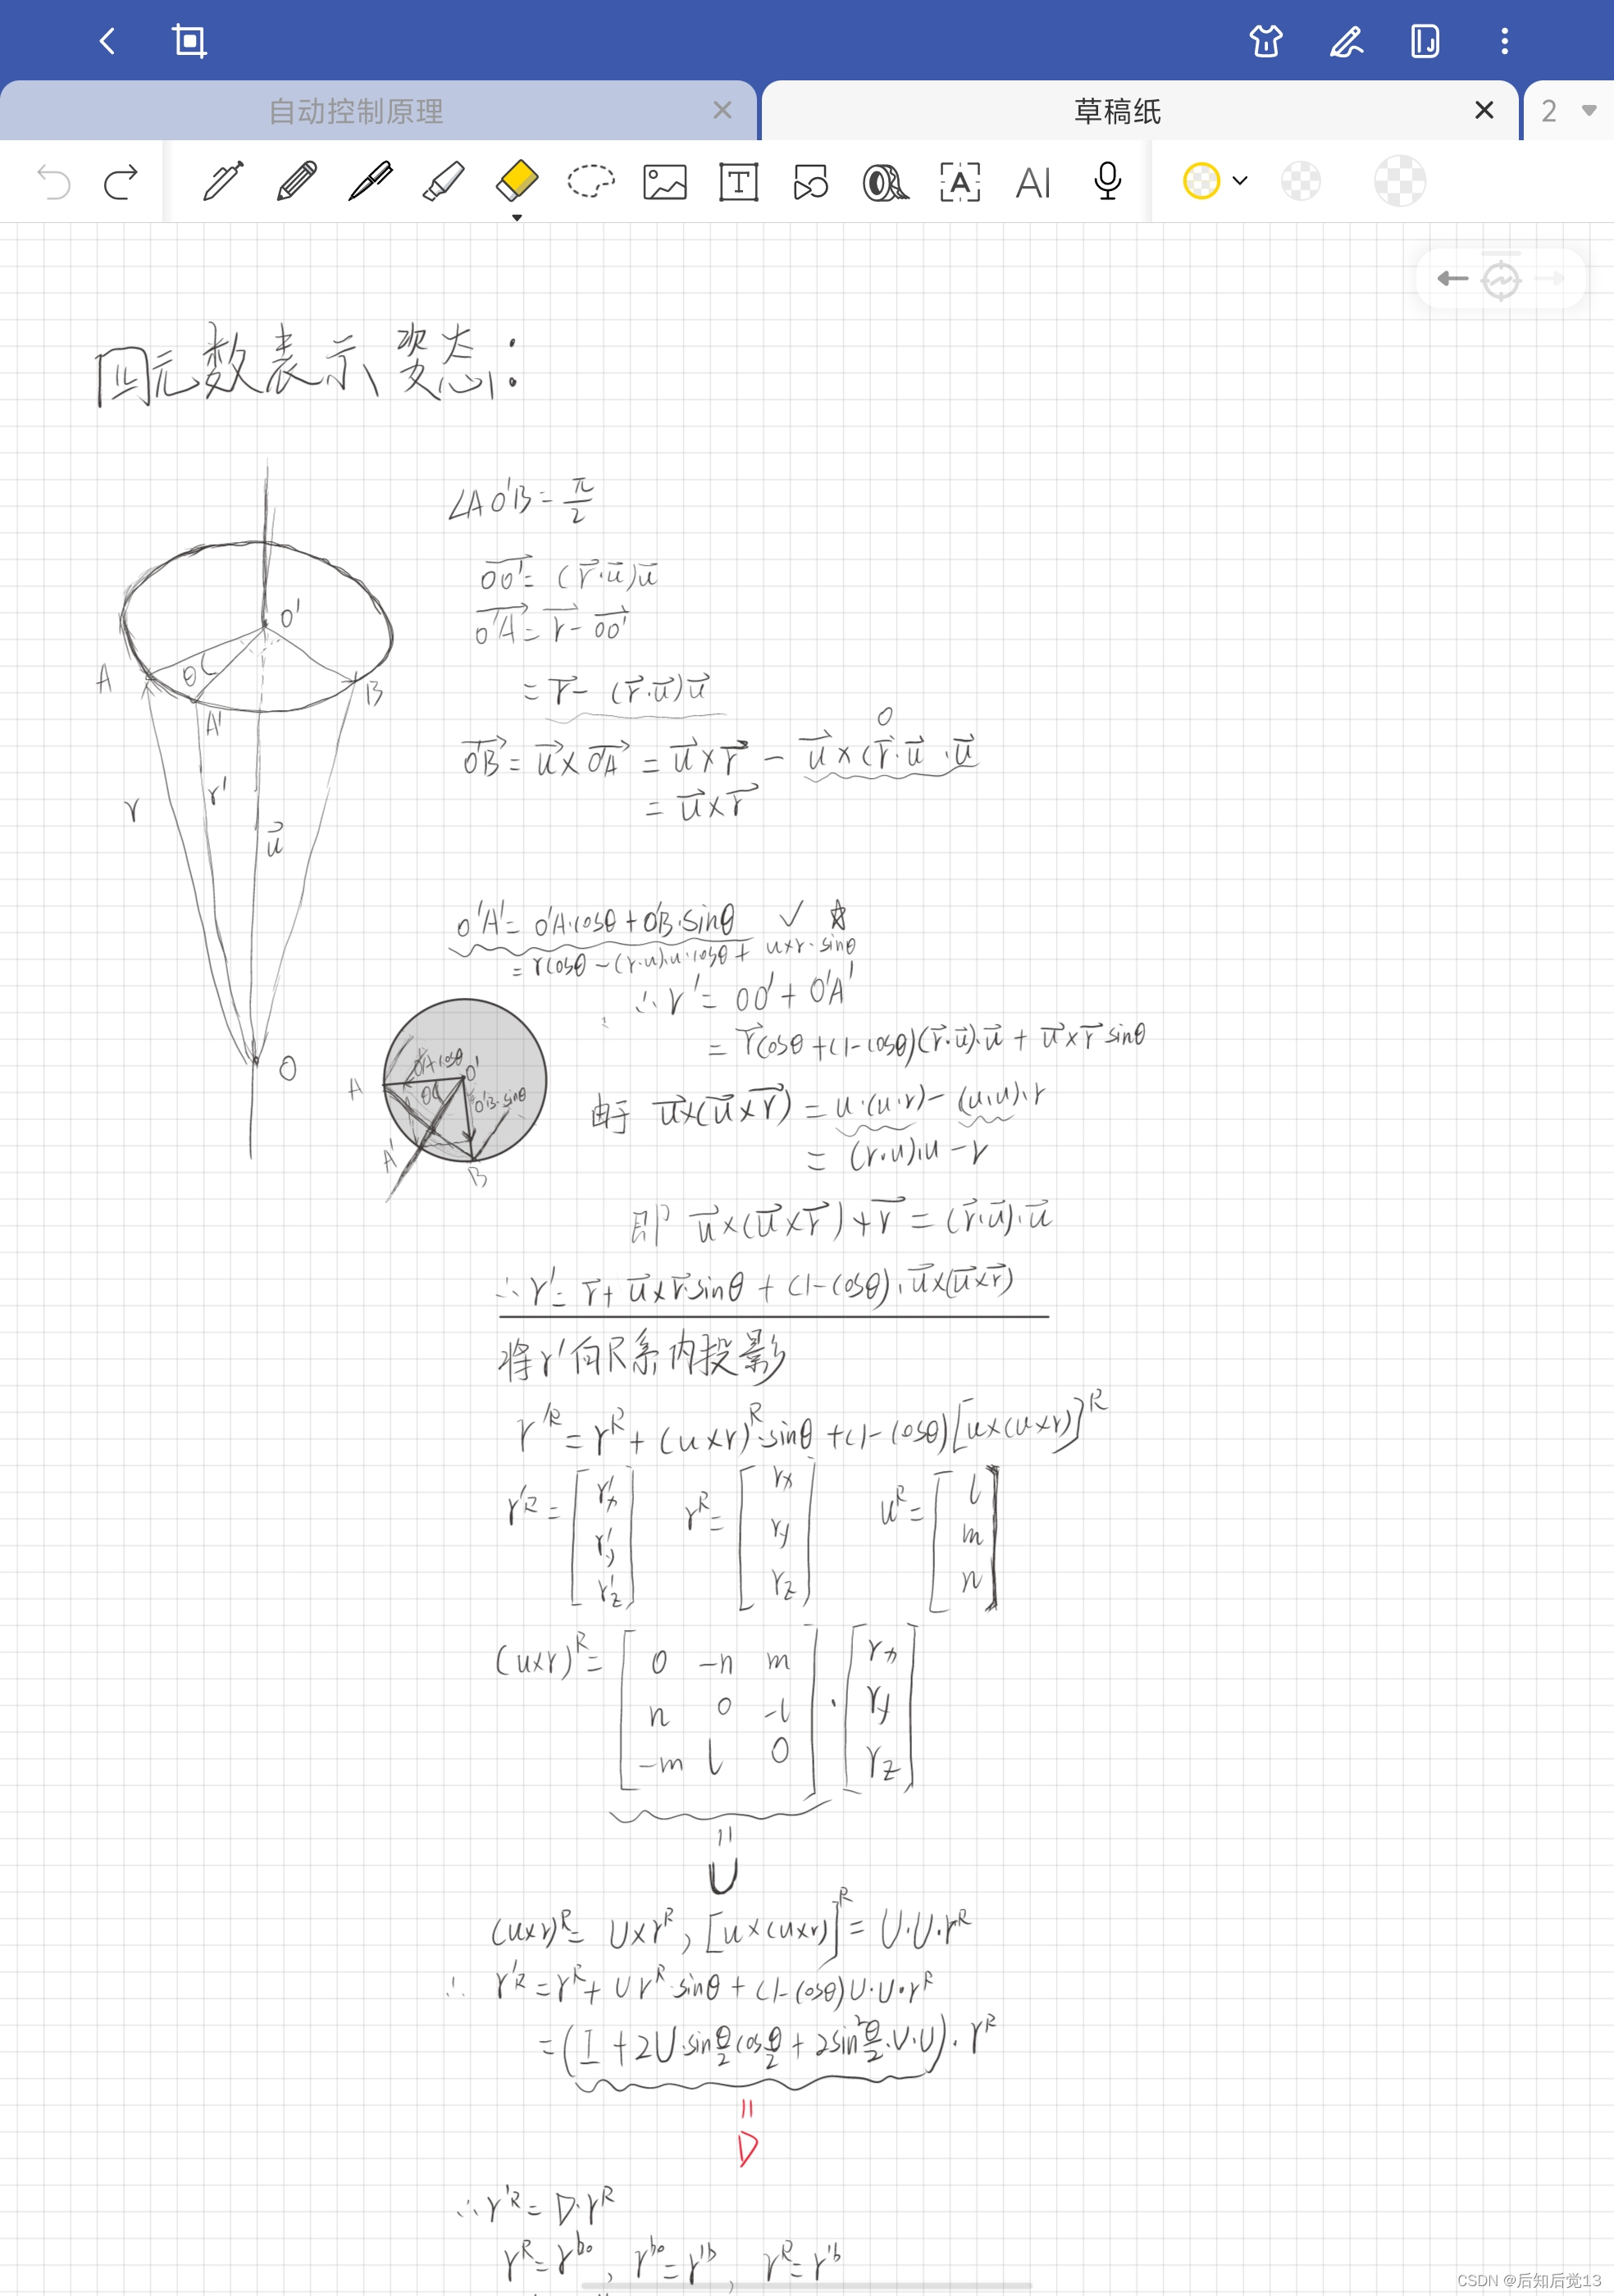 自动控制原理
草稿纸
2
T
A
AI
四元数表示姿态:
∠AO'B=π/2
OO'=(r·u)u
O'A=r-OO'
=r-(r·u)u
0
O'B=u×O'A=u×r-u×(r·u·u
=u×r
O'
θ
A
A'
B
r
r'
u
O
O'A'=O'A·cosθ+O'B·sinθ ✓ ☆
=rcosθ-(r·u)·u·cosθ+u×r·sinθ
∴r'=OO'+O'A'
=rcosθ+(1-cosθ)(r·u)·u+u×r sinθ
O'A cosθ
O'
θ
O'B·sinθ
A
A'
B
由于 u×(u×r)=u·(u·r)-(u·u)·r
=(r·u)·u-r
即 u×(u×r)+r=(r·u)·u
∴r'=r+u×r·sinθ+(1-cosθ)·u×(u×r)
将r'向R系内投影
r'ᴿ=rᴿ+(u×r)ᴿ·sinθ+(1-cosθ)[u×(u×r)]ᴿ
r'ᴿ=[r'x r'y r'z] rᴿ=[rx ry rz] uᴿ=[l m n]
(u×r)ᴿ=[0 -n m
n 0 -l
-m l 0]·[rx ry rz]
=
U
(u×r)ᴿ=U×rᴿ, [u×(u×r)]ᴿ=U·U·rᴿ
∴ r'ᴿ=rᴿ+Urᴿ·sinθ+(1-cosθ)U·U·rᴿ
=(I+2U·sinθ/2cosθ/2+2sin²θ/2·U·U)·rᴿ
=
D
∴r'ᴿ=D·rᴿ
rᴿ=r^b₀, r^b₀=r'^b, rᴿ=r'^b
CSDN @后知后觉13